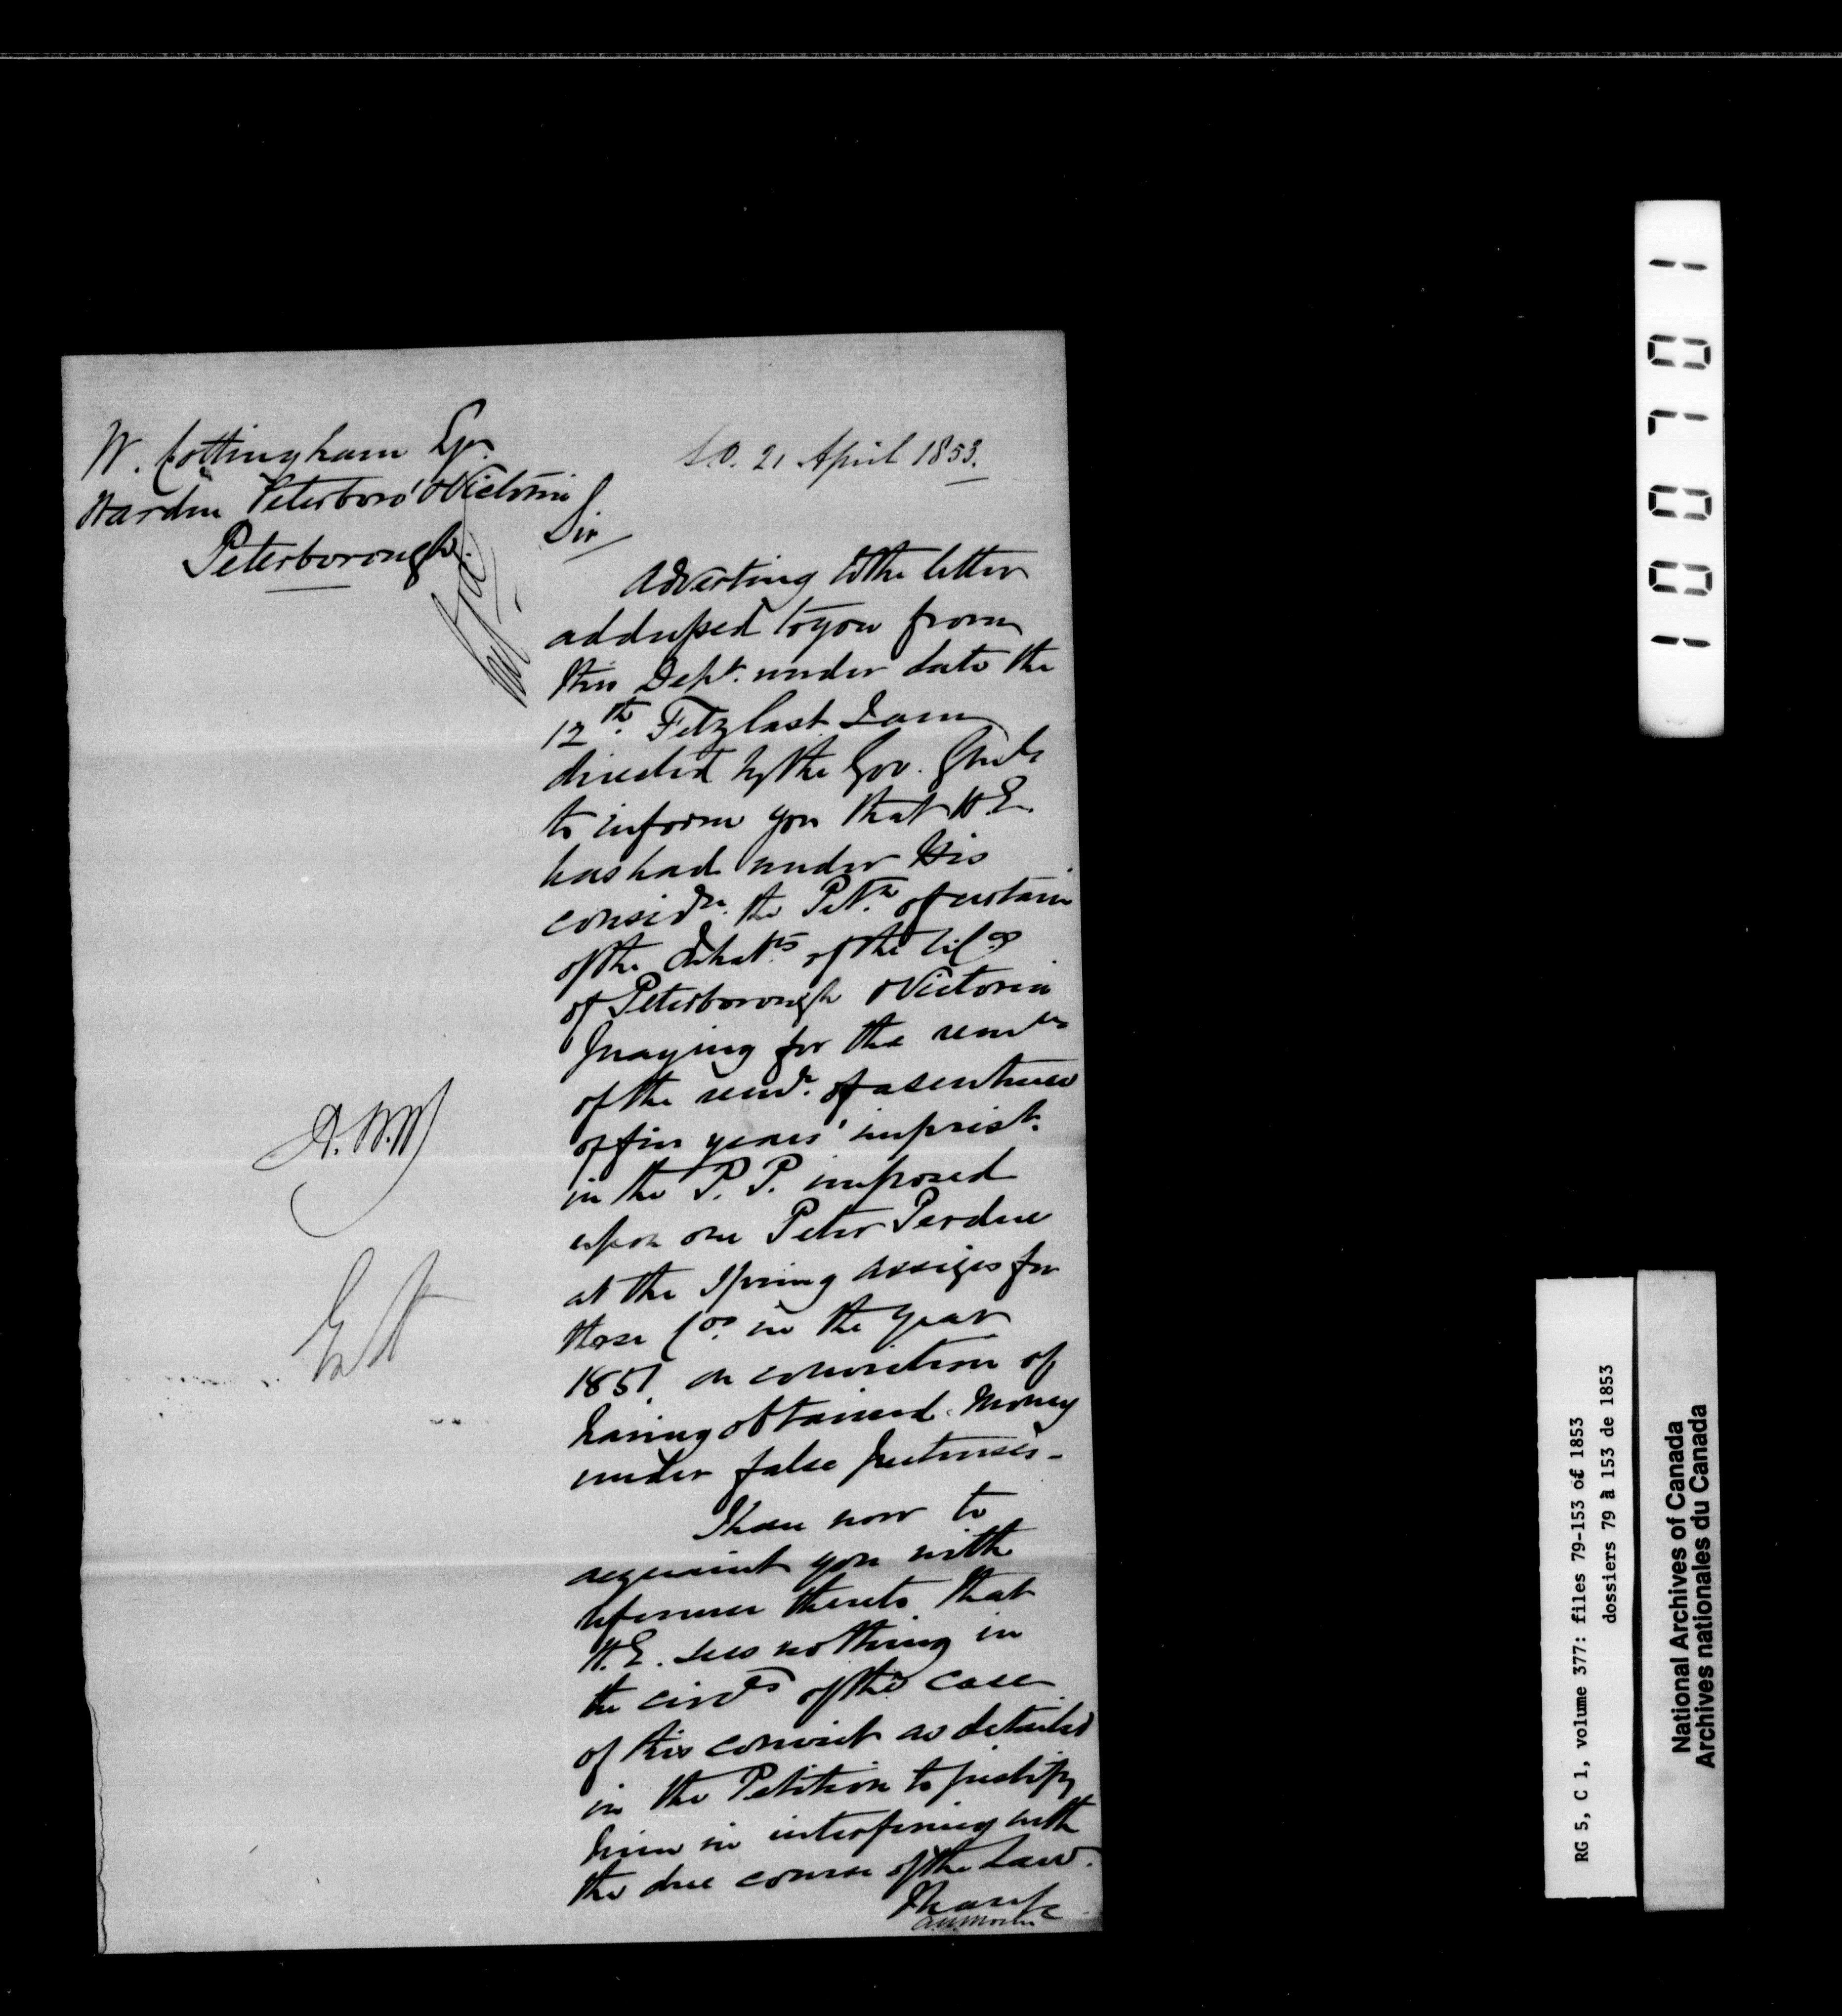 W. Cottingham Esqr.
Warden Peterboro' & Victoria
Peterborough.
S.O. 21 April 1853.
Sir
Adverting to the letter
addressed to you from
this Dept. under date the
12th. Feby last I am
directed by the Gov. Genl.
to inform you that H.E.
has had under His
considn. the Petn. of certain
of the Inhabts. of the
of Peterborough & Victoria
praying for the
of the remr. of a sentence
of five years' imprist.
in the P. P. imposed
upon one Peter Perdue
at the Spring Assizes for
those Cos. in the year
1851. on conviction of
having obtained money
under false pretenses -
I have now to
acquaint you with
reference thereto that
H.E. sees nothing in
the circes of the case
of this convict as detailed
in the Petition to justify
him in interfering with
the due course of the Law.
I have &c
A.N. Morin
A.N.M
100701
RG 5, C 1, volume 377: files 79-153 of 1853
dossiers 79 à 153 de 1853
National Archives of Canada
Archives nationales du Canada